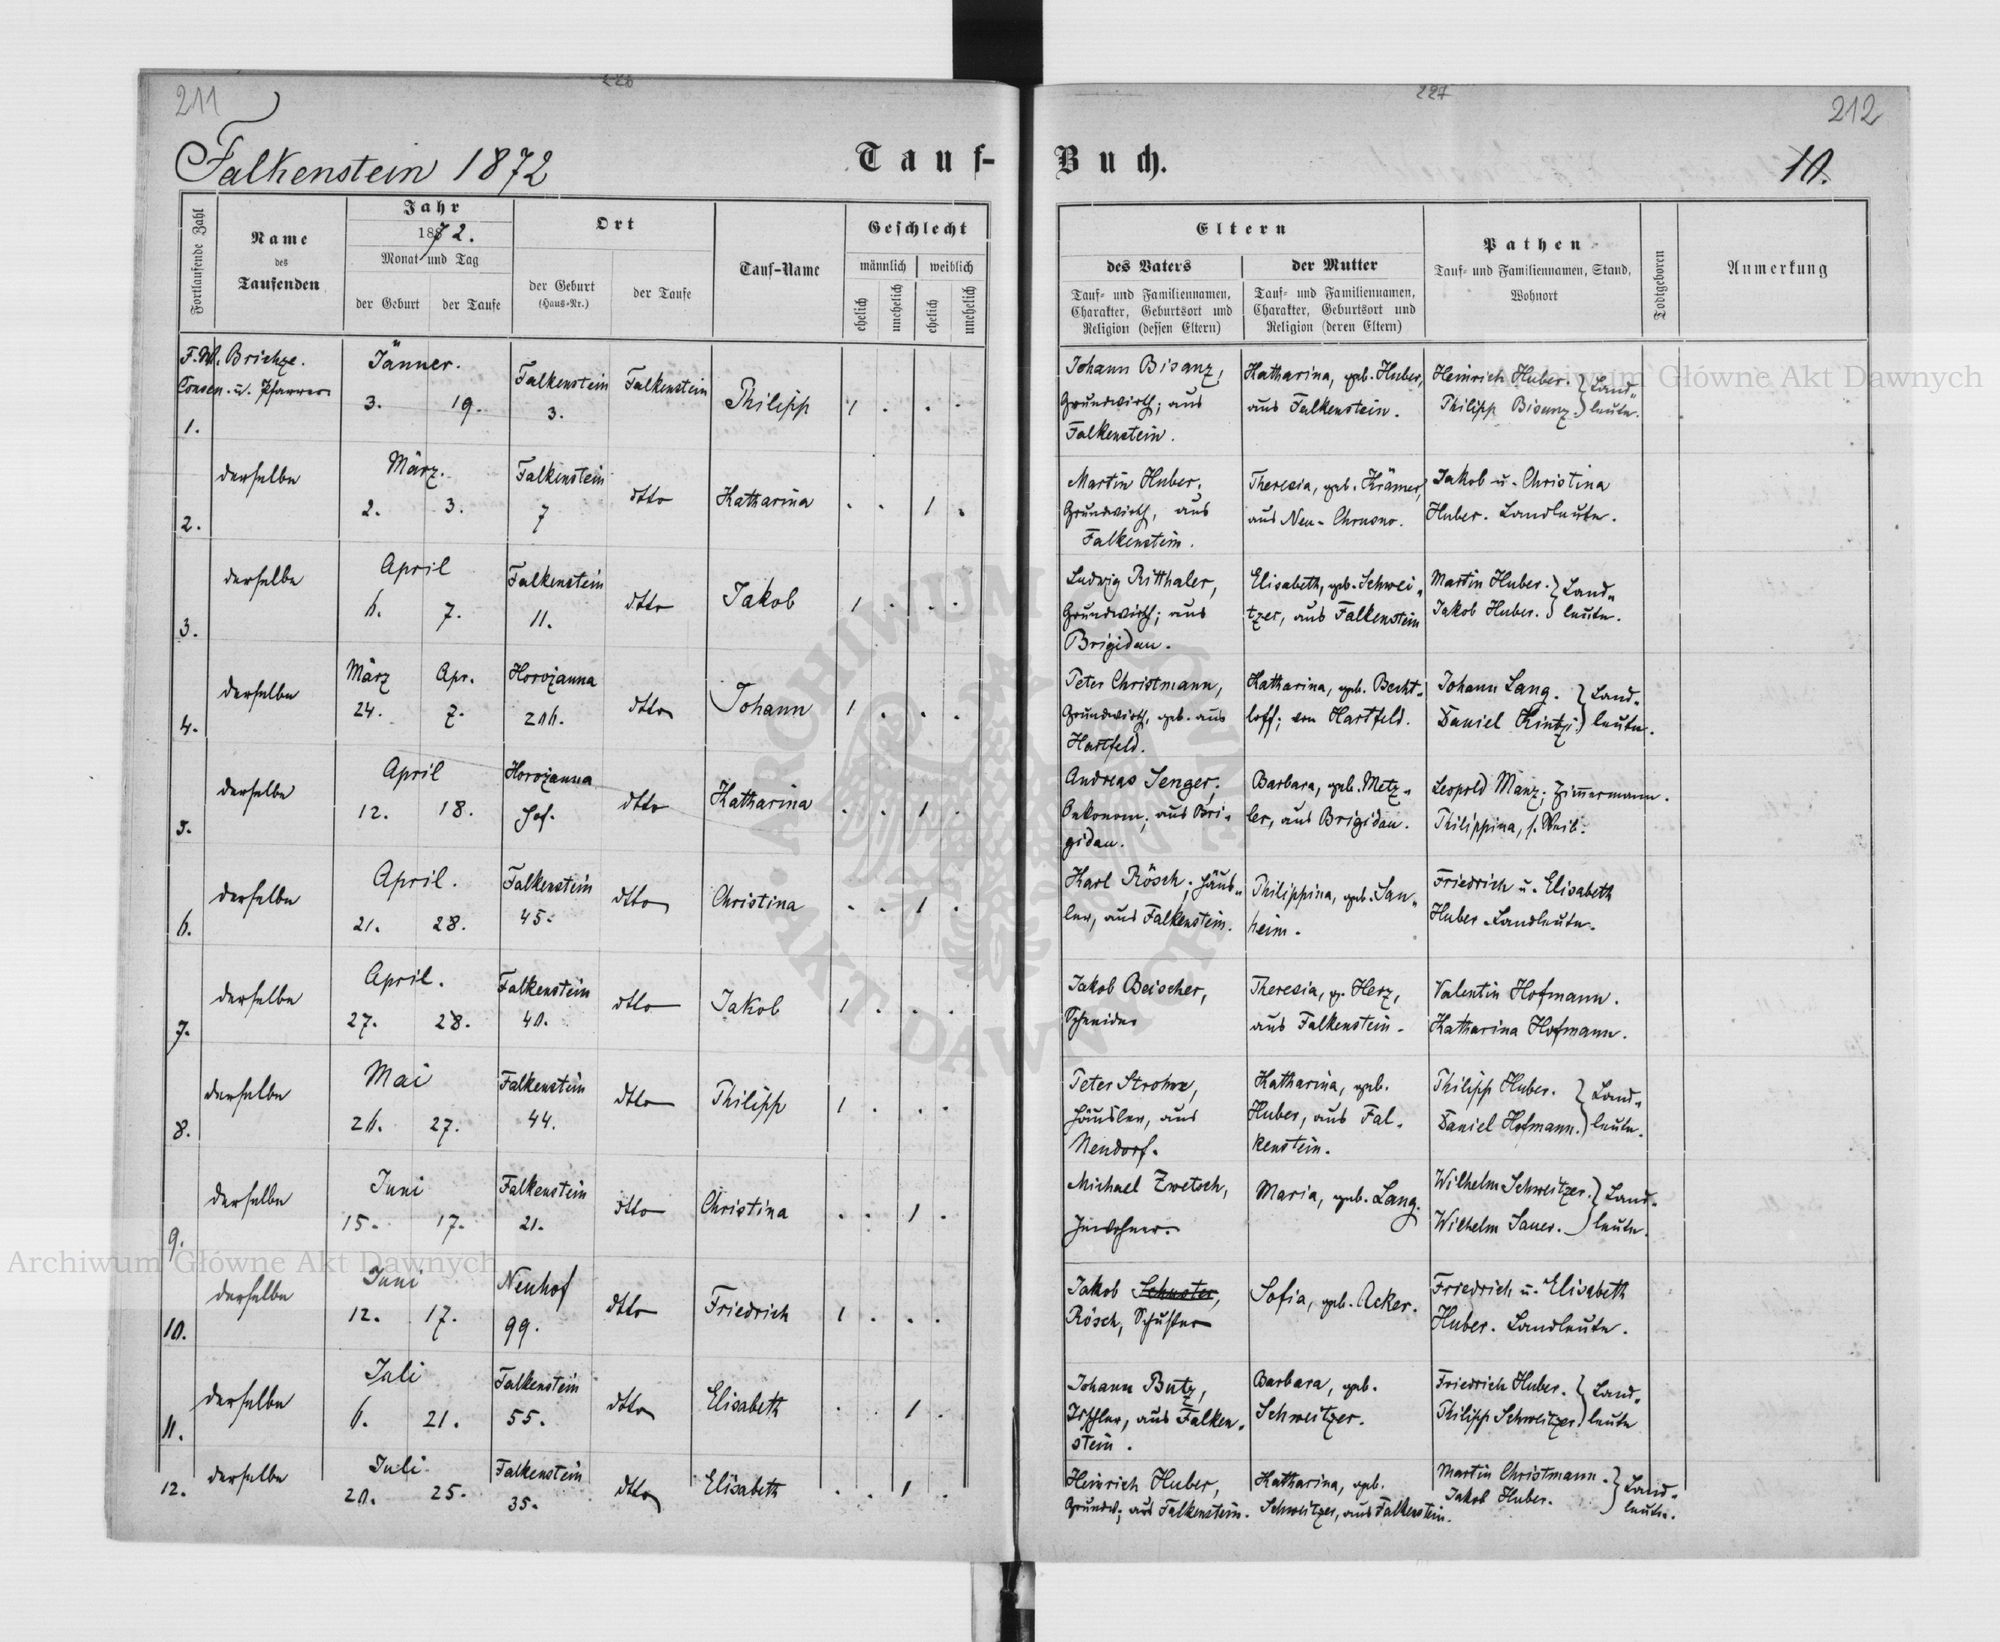 211
226
227
212
Falkenstein 1872
Tauf-
Buch.
10.
Fortlaufende Zahl
Name
des
Taufenden
Jahr
1872.
Monat und Tag
der Geburt
der Taufe
Ort
der Geburt
(Haus-Nr.)
der Taufe
Tauf-Name
Geschlecht
männlich
weiblich
ehelich
unehelich
ehelich
unehelich
Eltern
des Vaters
Tauf- und Familiennamen,
Charakter, Geburtsort und
Religion (dessen Eltern)
der Mutter
Tauf- und Familiennamen,
Charakter, Geburtsort und
Religion (deren Eltern)
Pathen
Tauf- und Familiennamen, Stand,
Wohnort
Todtgeboren
Anmerkung
Consen. u. Pfarrer
1.
Jänner.
3. 19.
Falkenstein
3.
Falkenstein
Philipp
1 . . .
Johann Bisanz,
Grundwirth; aus
Falkenstein.
Katharina, geb. Huber,
aus Falkenstein.
Heinrich Huber.
Philipp Bisanz.
Land-
leute.
2.
derselbe
März.
2. 3.
Falkenstein
7
dtto
Katharina
. . 1 .
Martin Huber,
Grundwirth, aus
Falkenstein.
Theresia, geb. Krämer,
aus Neu-Chrusno.
Jakob u. Christina
Huber. Landleute.
3.
derselbe
April
6. 7.
Falkenstein
11.
dtto
Jakob
1 . . .
Ludwig Ritthaler,
Grundwirth; aus
Brigidau.
Elisabeth, geb. Schwei-
tzer, aus Falkenstein
Martin Huber.
Jakob Huber.
Land-
leute.
4.
derselbe
März Apr.
24. 7.
Horozanna
206.
dtto
Johann
1 . . .
Peter Christmann,
Grundwirth, geb. aus
Hartfeld.
Katharina, geb. Becht-
loff; von Hartfeld.
Johann Lang.
Daniel Kintzi.
Land-
leute.
5.
derselbe
April
12. 18.
Horozanna
Hof.
dtto
Katharina
. . 1 .
Andreas Senger,
Oekonom; aus Bri-
gidau.
Barbara, geb. Metz-
ler, aus Brigidau.
Leopold Manz; Zimmermann.
Philippina, s. Weib.
6.
derselbe
April.
21. 28.
Falkenstein
45.
dtto
Christina
. . 1 .
Karl Rösch; Häus-
ler, aus Falkenstein.
Philippina, geb. San-
heim.
Friedrich u. Elisabeth
Huber. Landleute.
7.
derselbe
April.
27. 28.
Falkenstein
40.
dtto
Jakob
1 . . .
Jakob Beischer,
Schneider
Theresia, g. Herz,
aus Falkenstein.
Valentin Hofmann.
Katharina Hofmann.
8.
derselbe
Mai
26. 27.
Falkenstein
44.
dtto
Philipp
1 . . .
Peter
Häusler, aus
Neudorf.
Katharina, geb.
Huber, aus Fal-
kenstein.
Philipp Huber.
Daniel Hofmann.
Land-
leute.
9.
derselbe
Juni
15. 17.
Falkenstein
21.
dtto
Christina
. . 1 .
Michael Zwetsch,
Inwohner.
Maria, geb. Lang.
Wilhelm Schweitzer.
Wilhelm Sauer.
Land-
leute.
10.
derselbe
Juni
12. 17.
Neuhof
99.
dtto
Friedrich
1 . . .
Jakob Schuster,
Rösch, Schuster
Sofia, geb. Acker.
Friedrich u. Elisabeth
Huber. Landleute.
11.
derselbe
Juli
6. 21.
Falkenstein
55.
dtto
Elisabeth
. . 1 .
Johann Butz,
Tischler, aus Falken-
stein.
Barbara, geb.
Schweitzer.
Friedrich Huber.
Philipp Schweitzer
Land-
leute
12.
derselbe
Juli.
20. 25.
Falkenstein
35.
dtto
Elisabeth
. . 1 .
Heinrich Huber,
Grundw; aus Falkenstein.
Katharina, geb.
Schweitzer, aus Falkenstein.
Martin Christmann.
Jakob Huber.
Land-
leute.
Archiwum Główne Akt Dawnych
Archiwum Główne Akt Dawnych
ARCHIWUM GŁÓWNE AKT DAWNYCH